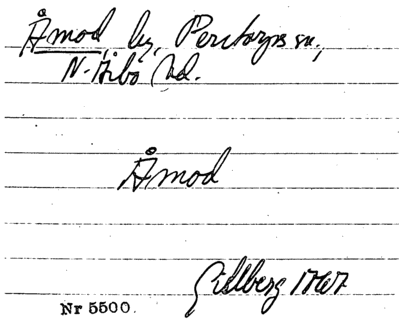 Åmod, by, Perstorps sn,
N. Åsbo hd.
Åmod
Gillberg 1767
Nr 5500